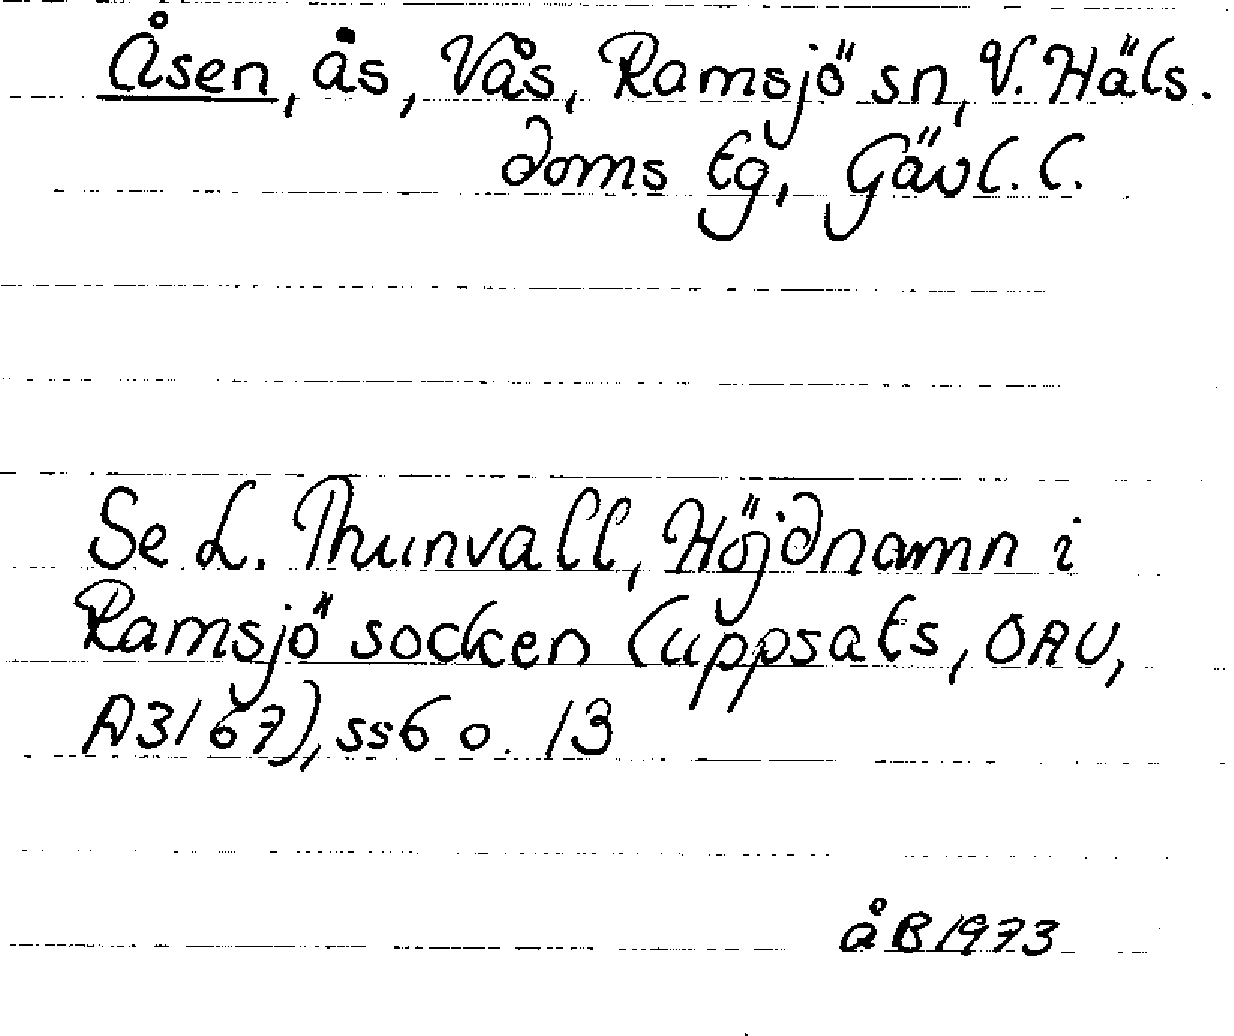 Åsen, ås, Vås, Ramsjö sn, V. Häls.
doms tg, Gävl. l.
Se L. Thunvall, Höjdnamn i
Ramsjö socken (uppsats, OAU,
A3167), ss 6 o. 13
åB 1973